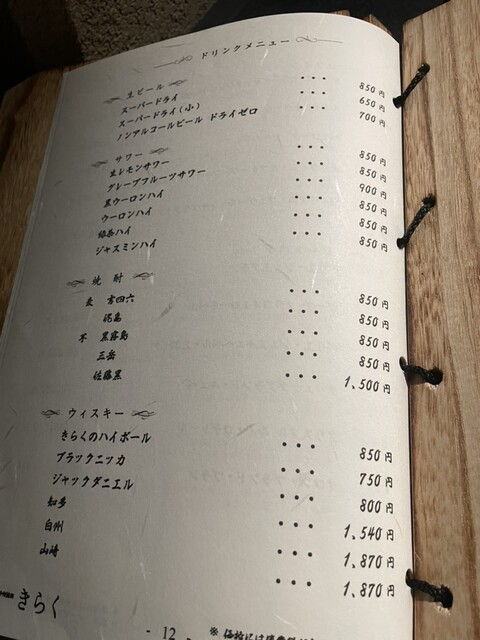 ドリンクメニュー
生ビール
スーパードライ ・・・ 850円
スーパードライ(小) ・・・ 650円
ノンアルコールビール ドライゼロ ・・・ 700円
サワー
生レモンサワー ・・・ 850円
グレープフルーツサワー ・・・ 850円
黒ウーロンハイ ・・・ 900円
ウーロンハイ ・・・ 850円
緑茶ハイ ・・・ 850円
ジャスミンハイ ・・・ 850円
焼酎
麦 吉四六 ・・・ 850円
兼八 ・・・ 850円
芋 黒霧島 ・・・ 850円
三岳 ・・・ 850円
佐藤黒 ・・・ 1,500円
ウィスキー
きらくのハイボール ・・・ 850円
ブラックニッカ ・・・ 750円
ジャックダニエル ・・・ 800円
知多 ・・・ 1,540円
白州 ・・・ 1,870円
山崎 ・・・ 1,870円
きらく
- 12 -
※ 価格には消費税